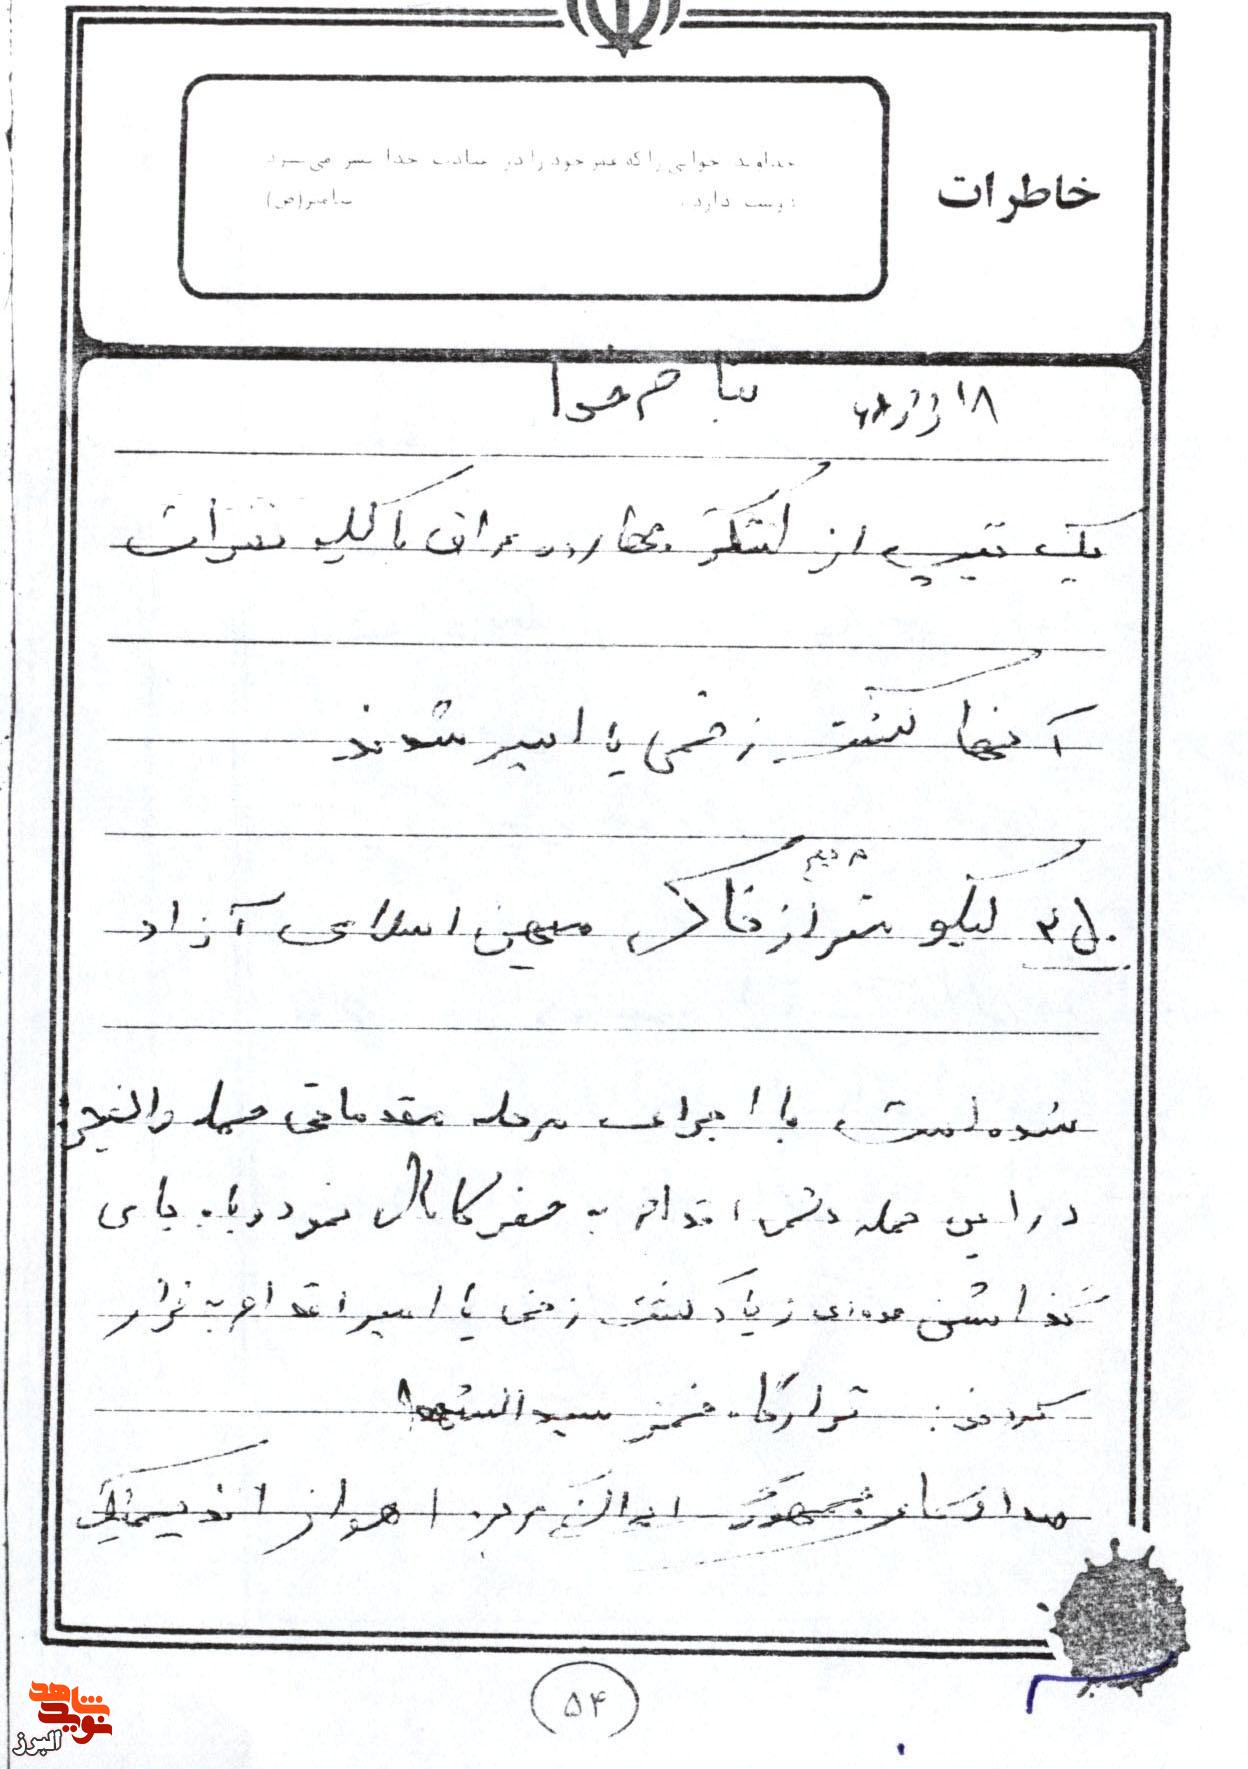 خاطرات
خداوند جوانی را که عمر خود را در عبادت خدا بسر می‌برد
دوست دارد. پیامبر(ص)
بنام خدا
یک تیپ از لشکر چهار عراق با کلیه نفرات
آنها کشته زخمی یا اسیر شوند
۲۵۰ کیلو متر مربع از خاک میهن اسلامی آزاد
شده است با اجرای مرحله مقدماتی حمله والفجر
در این حمله دشمن اقدام به حفر کانال نمود و با به جای
گذاشتن عده‌ای زیاد کشته زخمی یا اسیر اقدام به فرار
کردند. قرارگاه سیدالشهدا
صدا جمهوری اهواز اندیمشک
۵۴
نوید شاهد
البرز